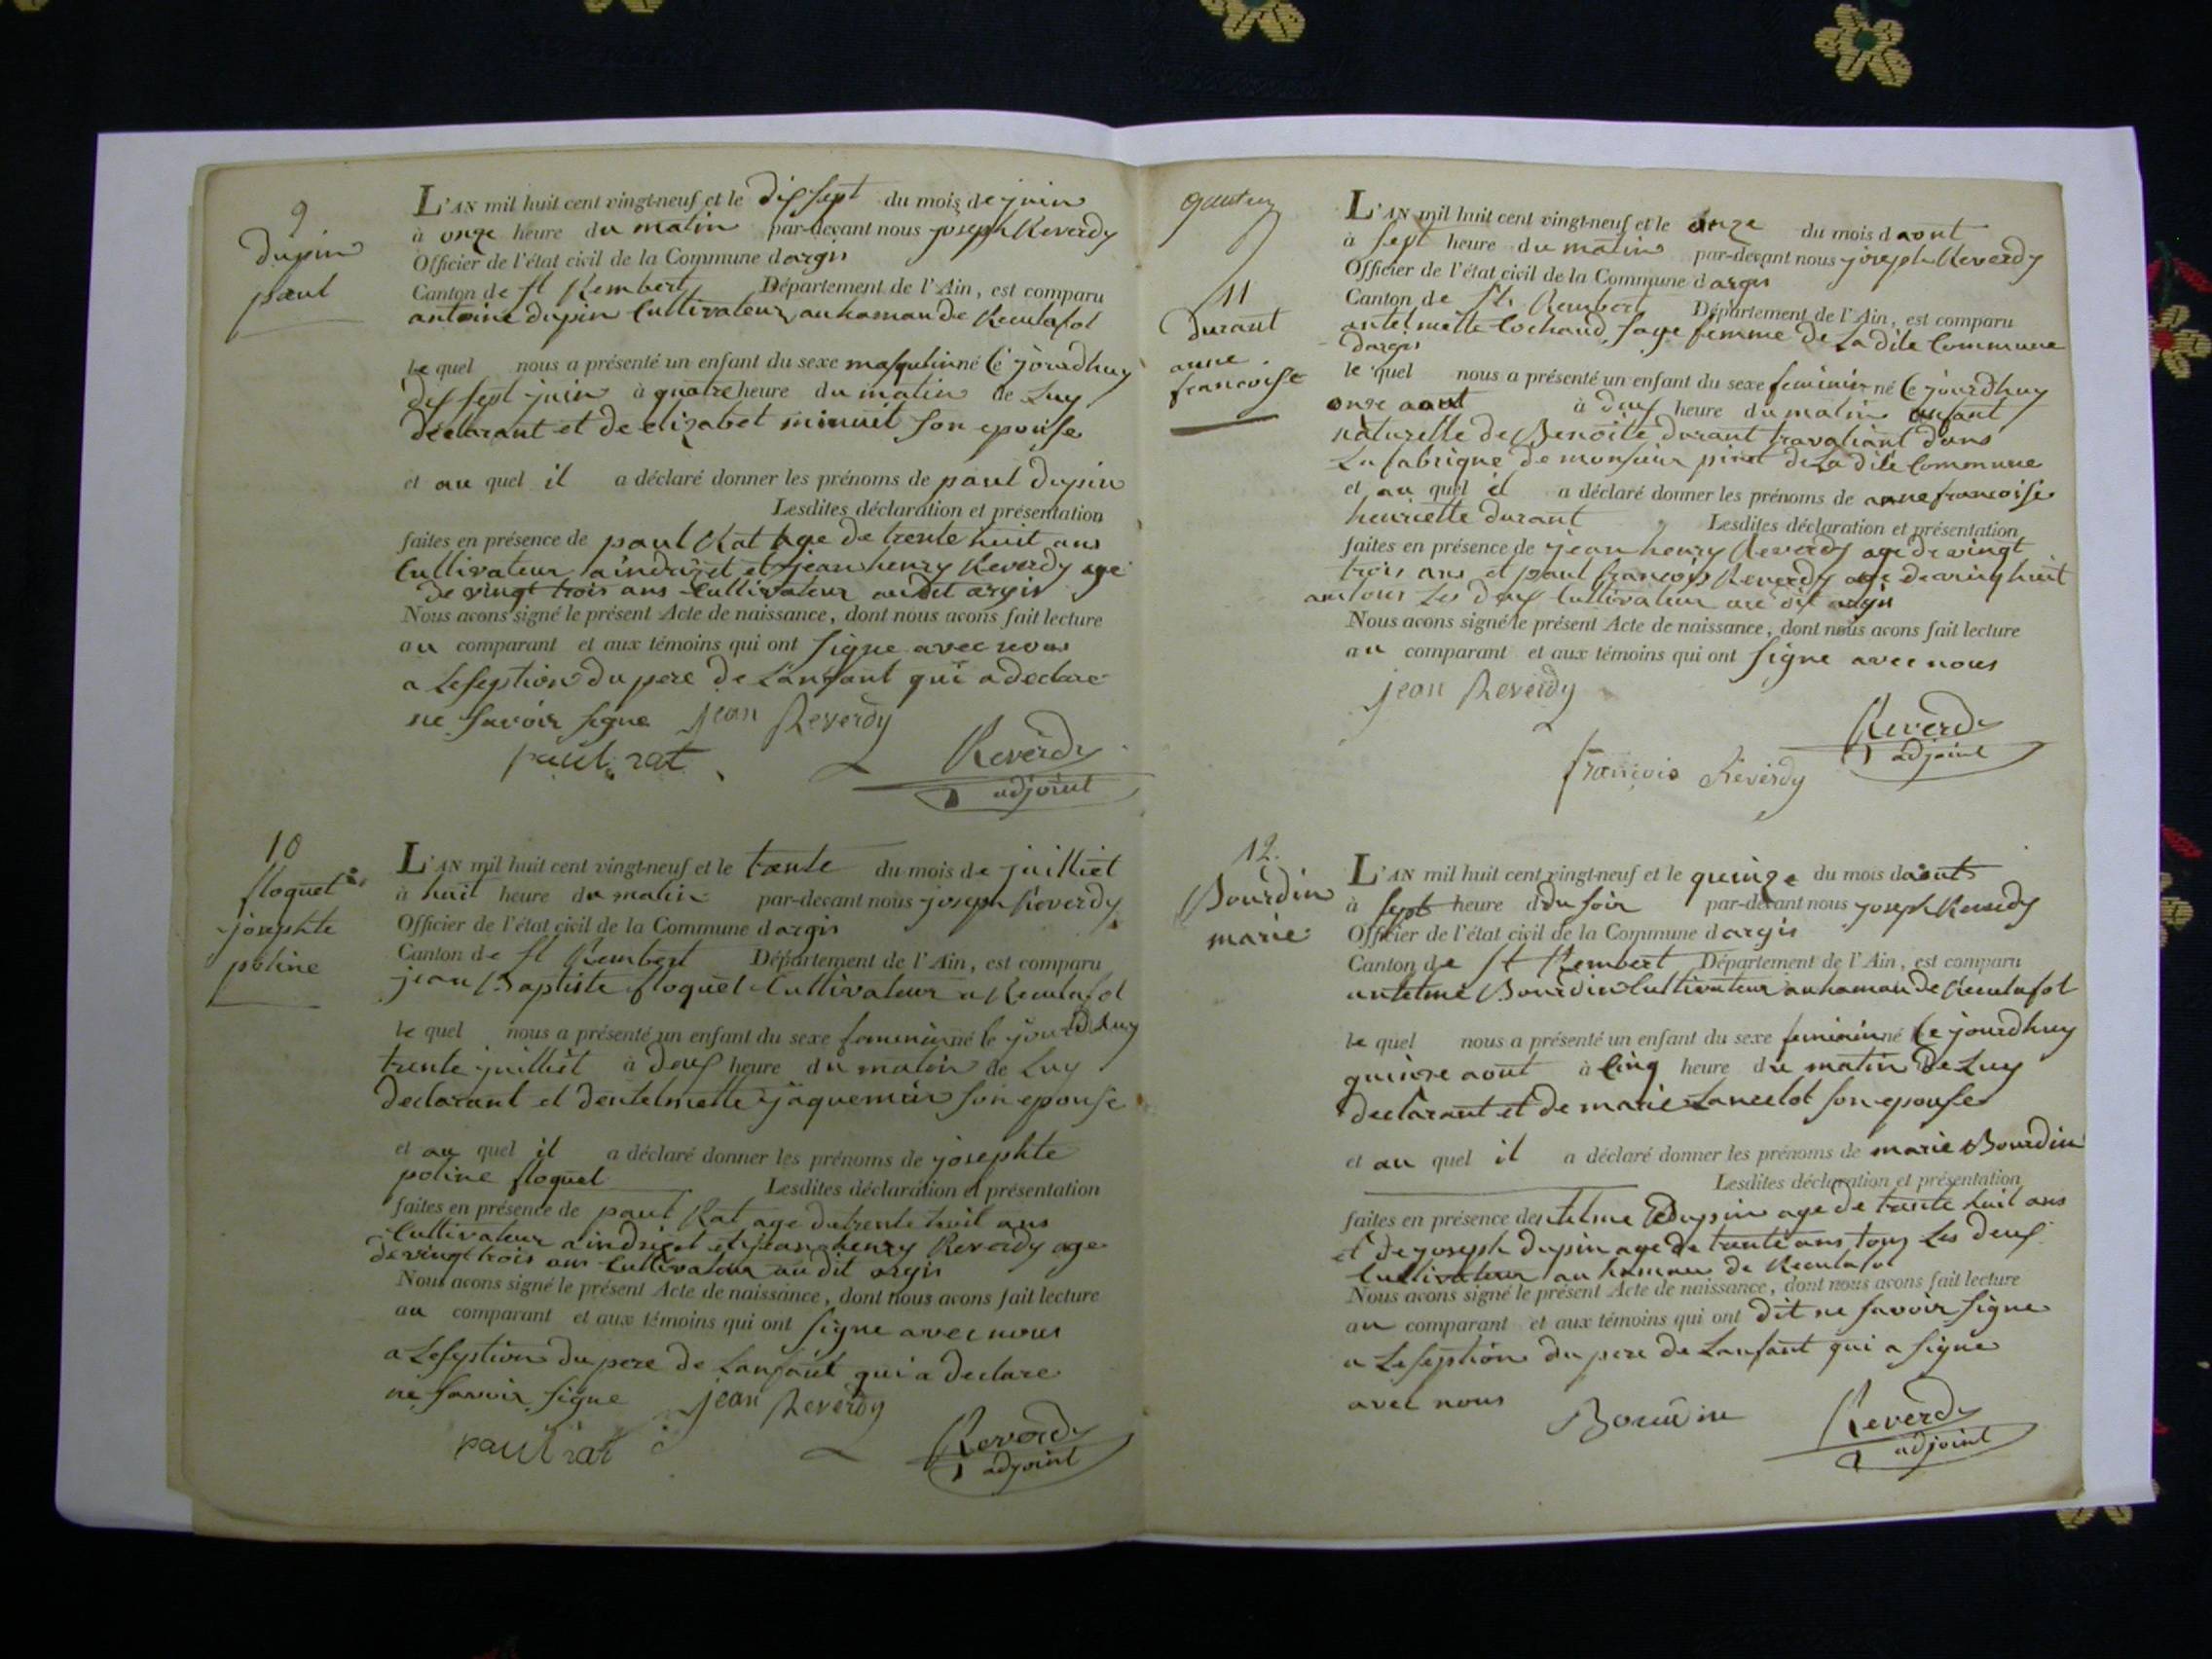 9
dupin
paul
L'AN mil huit cent vingt-neuf et le dix sept du mois de juin
à onze heure du matin par-devant nous joseph Reverdy
Officier de l'état civil de la Commune dargis
Canton de st Rembert Département de l'Ain, est comparu
antoine dupin Cultivateur au haman de Reculafol
le quel nous a présenté un enfant du sexe masqulin né Ce jourdhuy
dix sept juin à quatre heure du matin de Luy
declarant et de elizabet minuet son epouse
et au quel il a déclaré donner les prénoms de paul dupin
Lesdites déclaration et présentation
faites en présence de paul Rat age de trente huit ans
Cultivateur a indrizet et jean henry Reverdy age
de vingt trois ans Cultivateur au dit argis
Nous avons signé le présent Acte de naissance, dont nous avons fait lecture
au comparant et aux témoins qui ont signe avec nous
a Leseption du pere de Lanfant qui a declare
ne savoir signe jean Reverdy
paul rat Reverdy
adjoint
10
floquet
josephte
poline
L'AN mil huit cent vingt-neuf et le trente du mois de juilliet
à huit heure du matin par-devant nous joseph Reverdy
Officier de l'état civil de la Commune dargis
Canton de st Rembert Département de l'Ain, est comparu
jean Baptiste floquet Cultivateur a Reculafol
le quel nous a présenté un enfant du sexe feminin né le jourdhuy
trente juilliet à deux heure du matin de Luy
declarant et dentelmette jaquemin son epouse
et au quel il a déclaré donner les prénoms de josephte
poline floquet Lesdites déclaration et présentation
faites en présence de paul Rat age de trente huit ans
Cultivateur a indrizet et jean henry Reverdy age
de vingt trois ans Cultivateur au dit argis
Nous avons signé le présent Acte de naissance, dont nous avons fait lecture
au comparant et aux témoins qui ont signe avec nous
a Leseption du pere de Lanfant qui a declare
ne savoir signe jean Reverdy
paul rat Reverdy
adjoint
11
durant
anne
francoise
L'AN mil huit cent vingt-neuf et le onze du mois daout
à sept heure du matin par-devant nous joseph Reverdy
Officier de l'état civil de la Commune dargis
Canton de st Rembert Département de l'Ain, est comparu
antelmette Cochaud sage femme de La dite Commune
dargis
le quel nous a présenté un enfant du sexe feminin né Ce jourdhuy
onze aout à deux heure du matin enfant
naturelle de Benoite durant travaliant dans
La fabrique de monsieur de La dite Commune
et au quel il a déclaré donner les prénoms de anne francoise
henriette durant Lesdites déclaration et présentation
faites en présence de jean henry Reverdy age de vingt
trois ans et paul francois Reverdy age de ving huit
ans tous Les deux Cultivateur au dit argis
Nous avons signé le présent Acte de naissance, dont nous avons fait lecture
au comparant et aux témoins qui ont signe avec nous
jean Reverdy
Reverdy
adjoint
françois Reverdy
12
Bourdin
marie
L'AN mil huit cent vingt-neuf et le quinze du mois daout
à sept heure du soir par-devant nous joseph Reverdy
Officier de l'état civil de la Commune dargis
Canton de st Rembert Département de l'Ain, est comparu
antelme Bourdin Cultivateur au haman de Reculafol
le quel nous a présenté un enfant du sexe feminin né Ce jourdhuy
quinze aout à Cinq heure du matin de Luy
declarant et de marie Lancelot son epouse
et au quel il a déclaré donner les prénoms de marie Bourdin
Lesdites déclaration et présentation
faites en présence dentelme dupin age de trente huit ans
et de joseph dupin age de trente ans tous Les deux
Cultivateur au haman de Reculafol
Nous avons signé le présent Acte de naissance, dont nous avons fait lecture
au comparant et aux témoins qui ont dit ne savoir signe
a Leseption du pere de Lanfant qui a signe
avec nous Bourdin Reverdy
adjoint